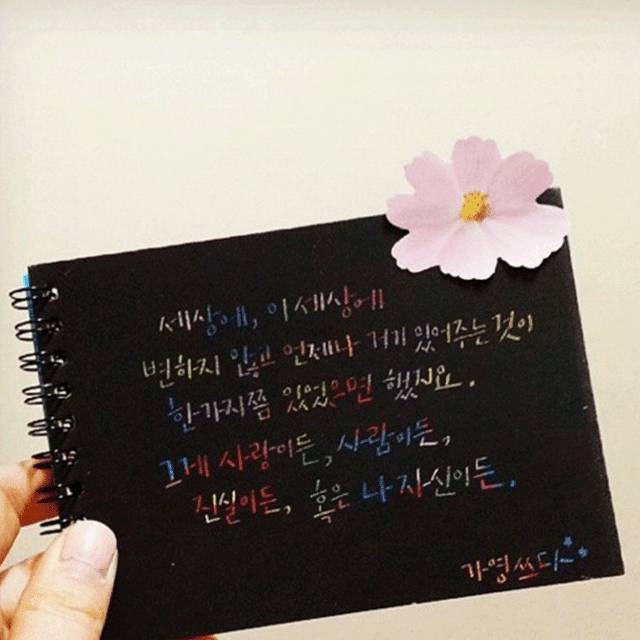 세상에, 이 세상에
변하지 않고 언제나 거기 있어주는 것이
한가지쯤 있었으면 했지요.
그게 사랑이든, 사람이든,
진실이든, 혹은 나 자신이든.
가영쓰다~